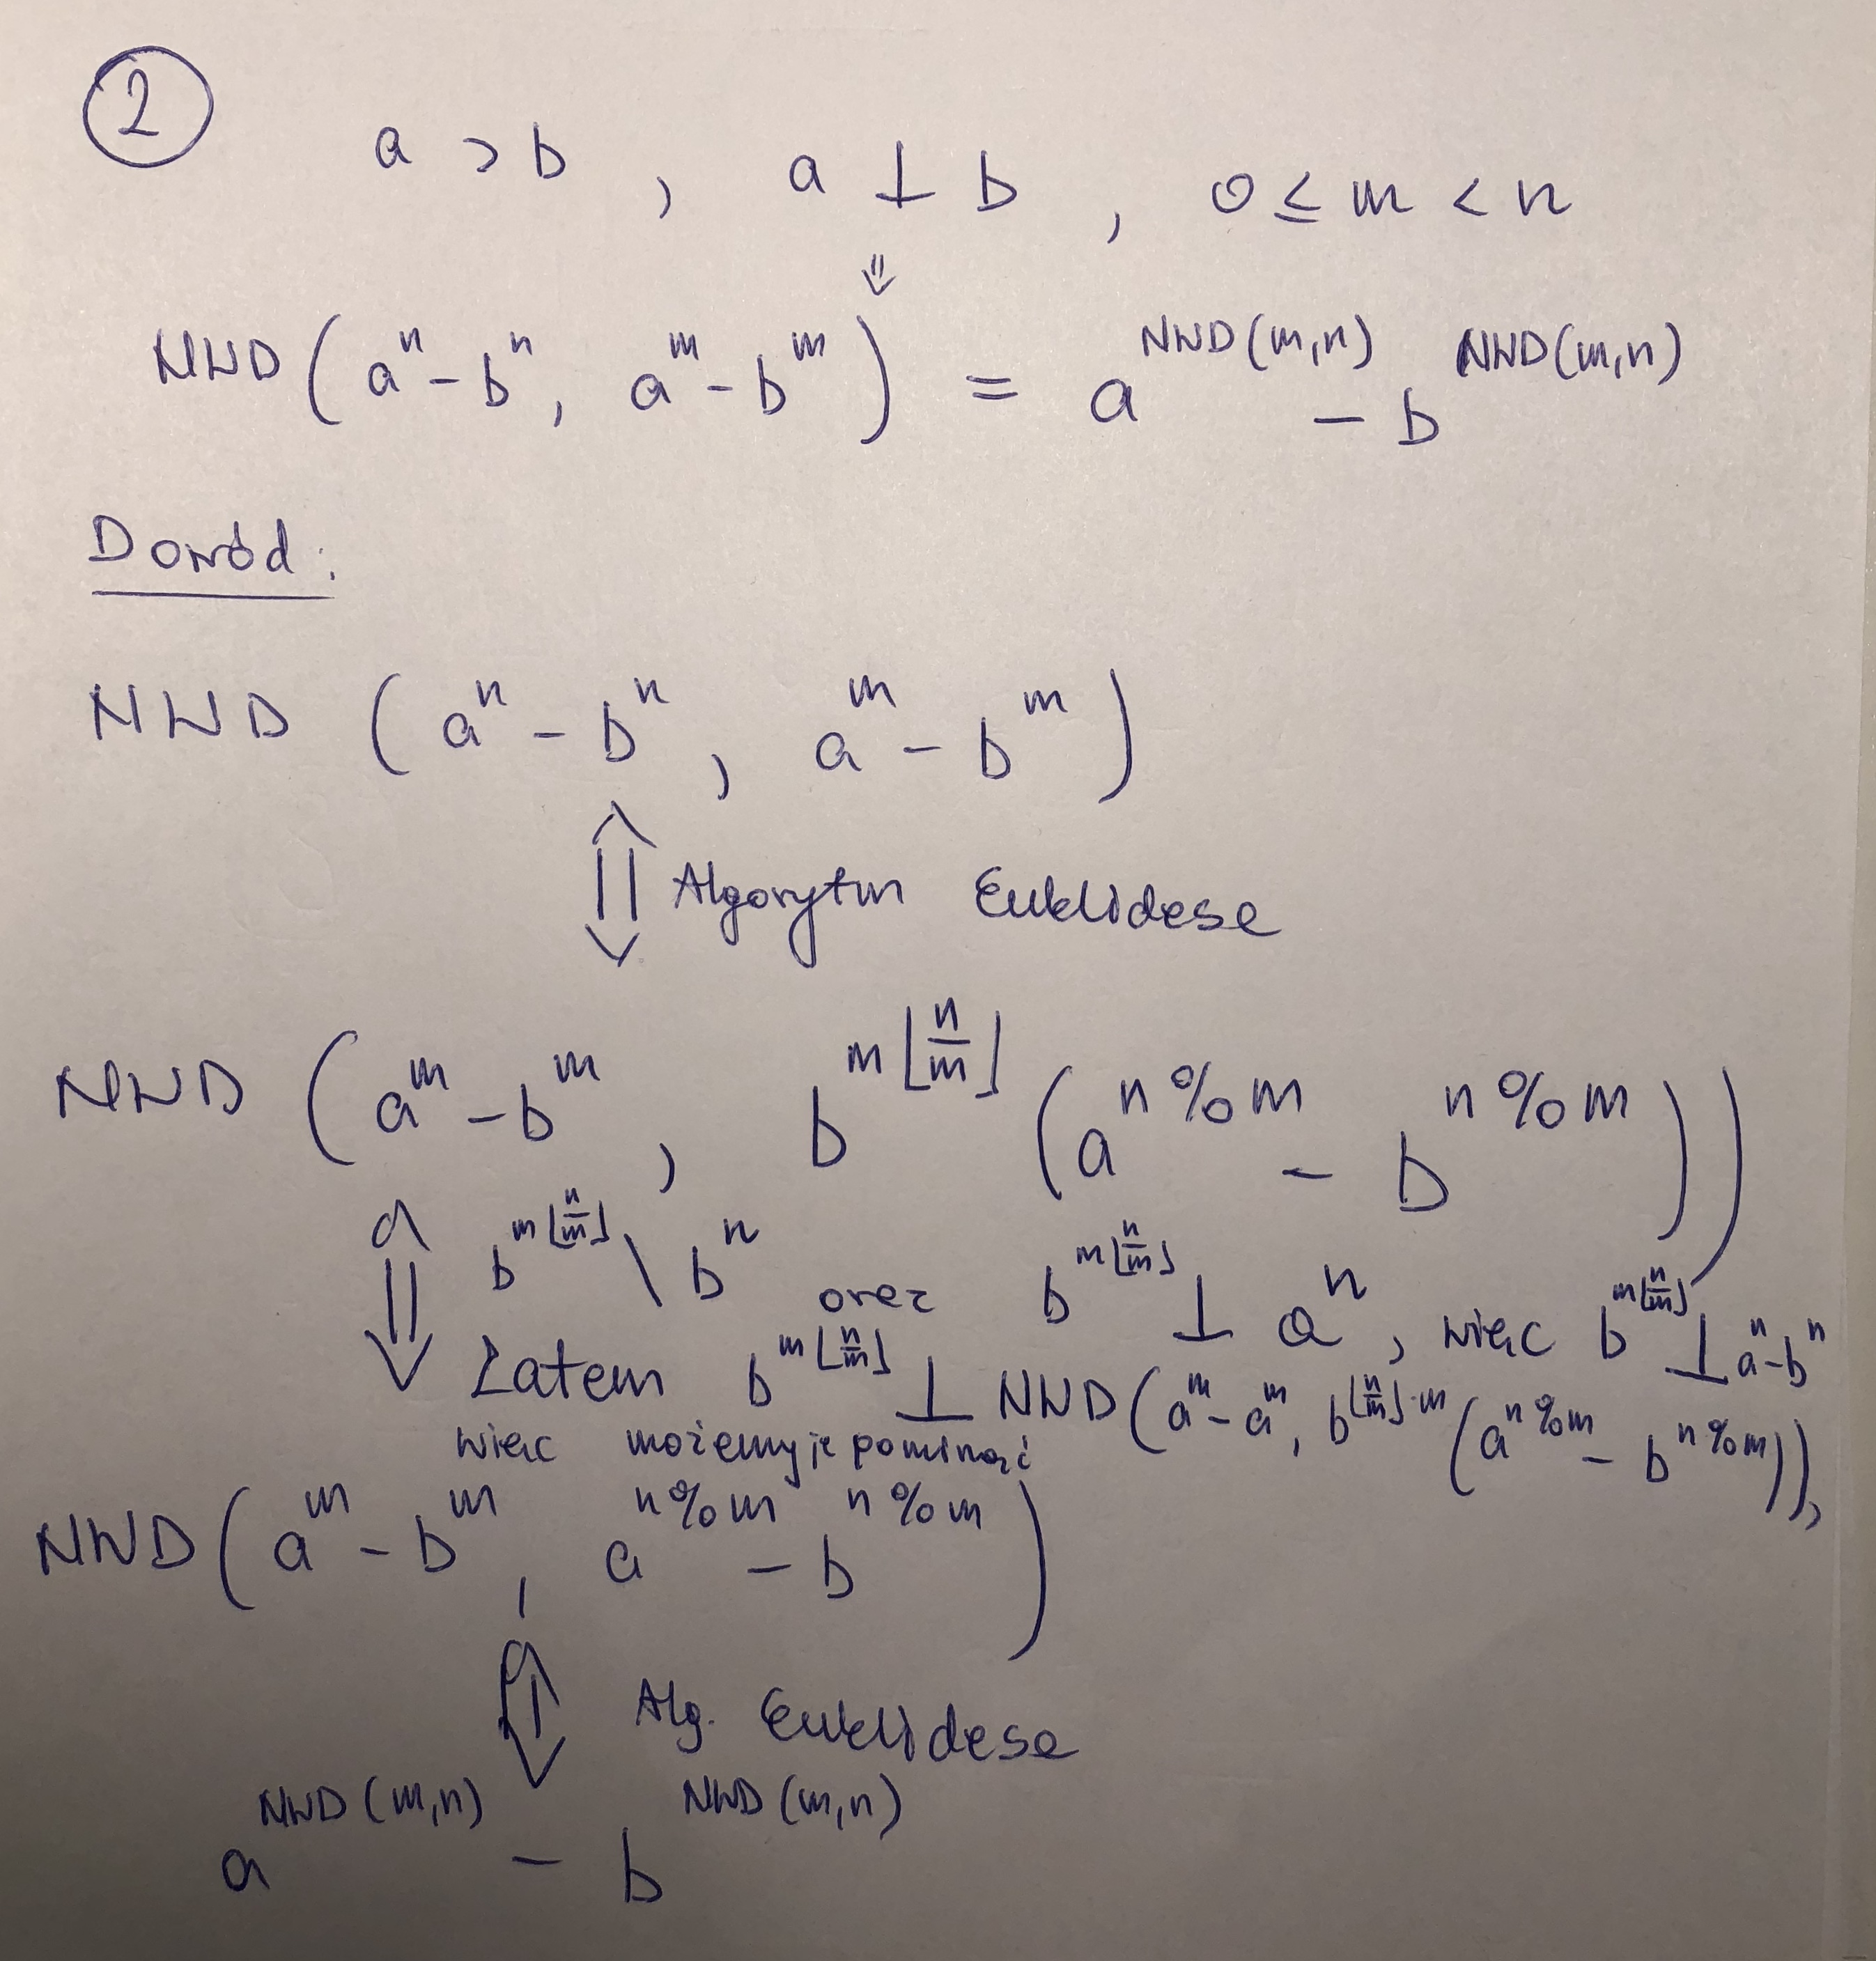 ②
a > b , a ⊥ b , 0 ≤ m < n
⇓
NWD (a^n - b^n, a^m - b^m) = a^{NWD(m,n)} - b^{NWD(m,n)}
Dowód:
NWD (a^n - b^n, a^m - b^m)
⇕ Algorytm Euklidesa
NWD (a^m - b^m, b^{m⌊n/m⌋} (a^{n%m} - b^{n%m}))
⇕ b^{m⌊n/m⌋} \ b^n oraz b^{m⌊n/m⌋} ⊥ a^n, więc b^{m⌊n/m⌋} ⊥ a^n - b^n
Zatem b^{m⌊n/m⌋} ⊥ NWD (a^m - a^m, b^{⌊n/m⌋·m} (a^{n%m} - b^{n%m})),
więc możemy je pominąć
NWD (a^m - b^m, a^{n%m} - b^{n%m})
⇕ Alg. Euklidesa
a^{NWD(m,n)} - b^{NWD(m,n)}